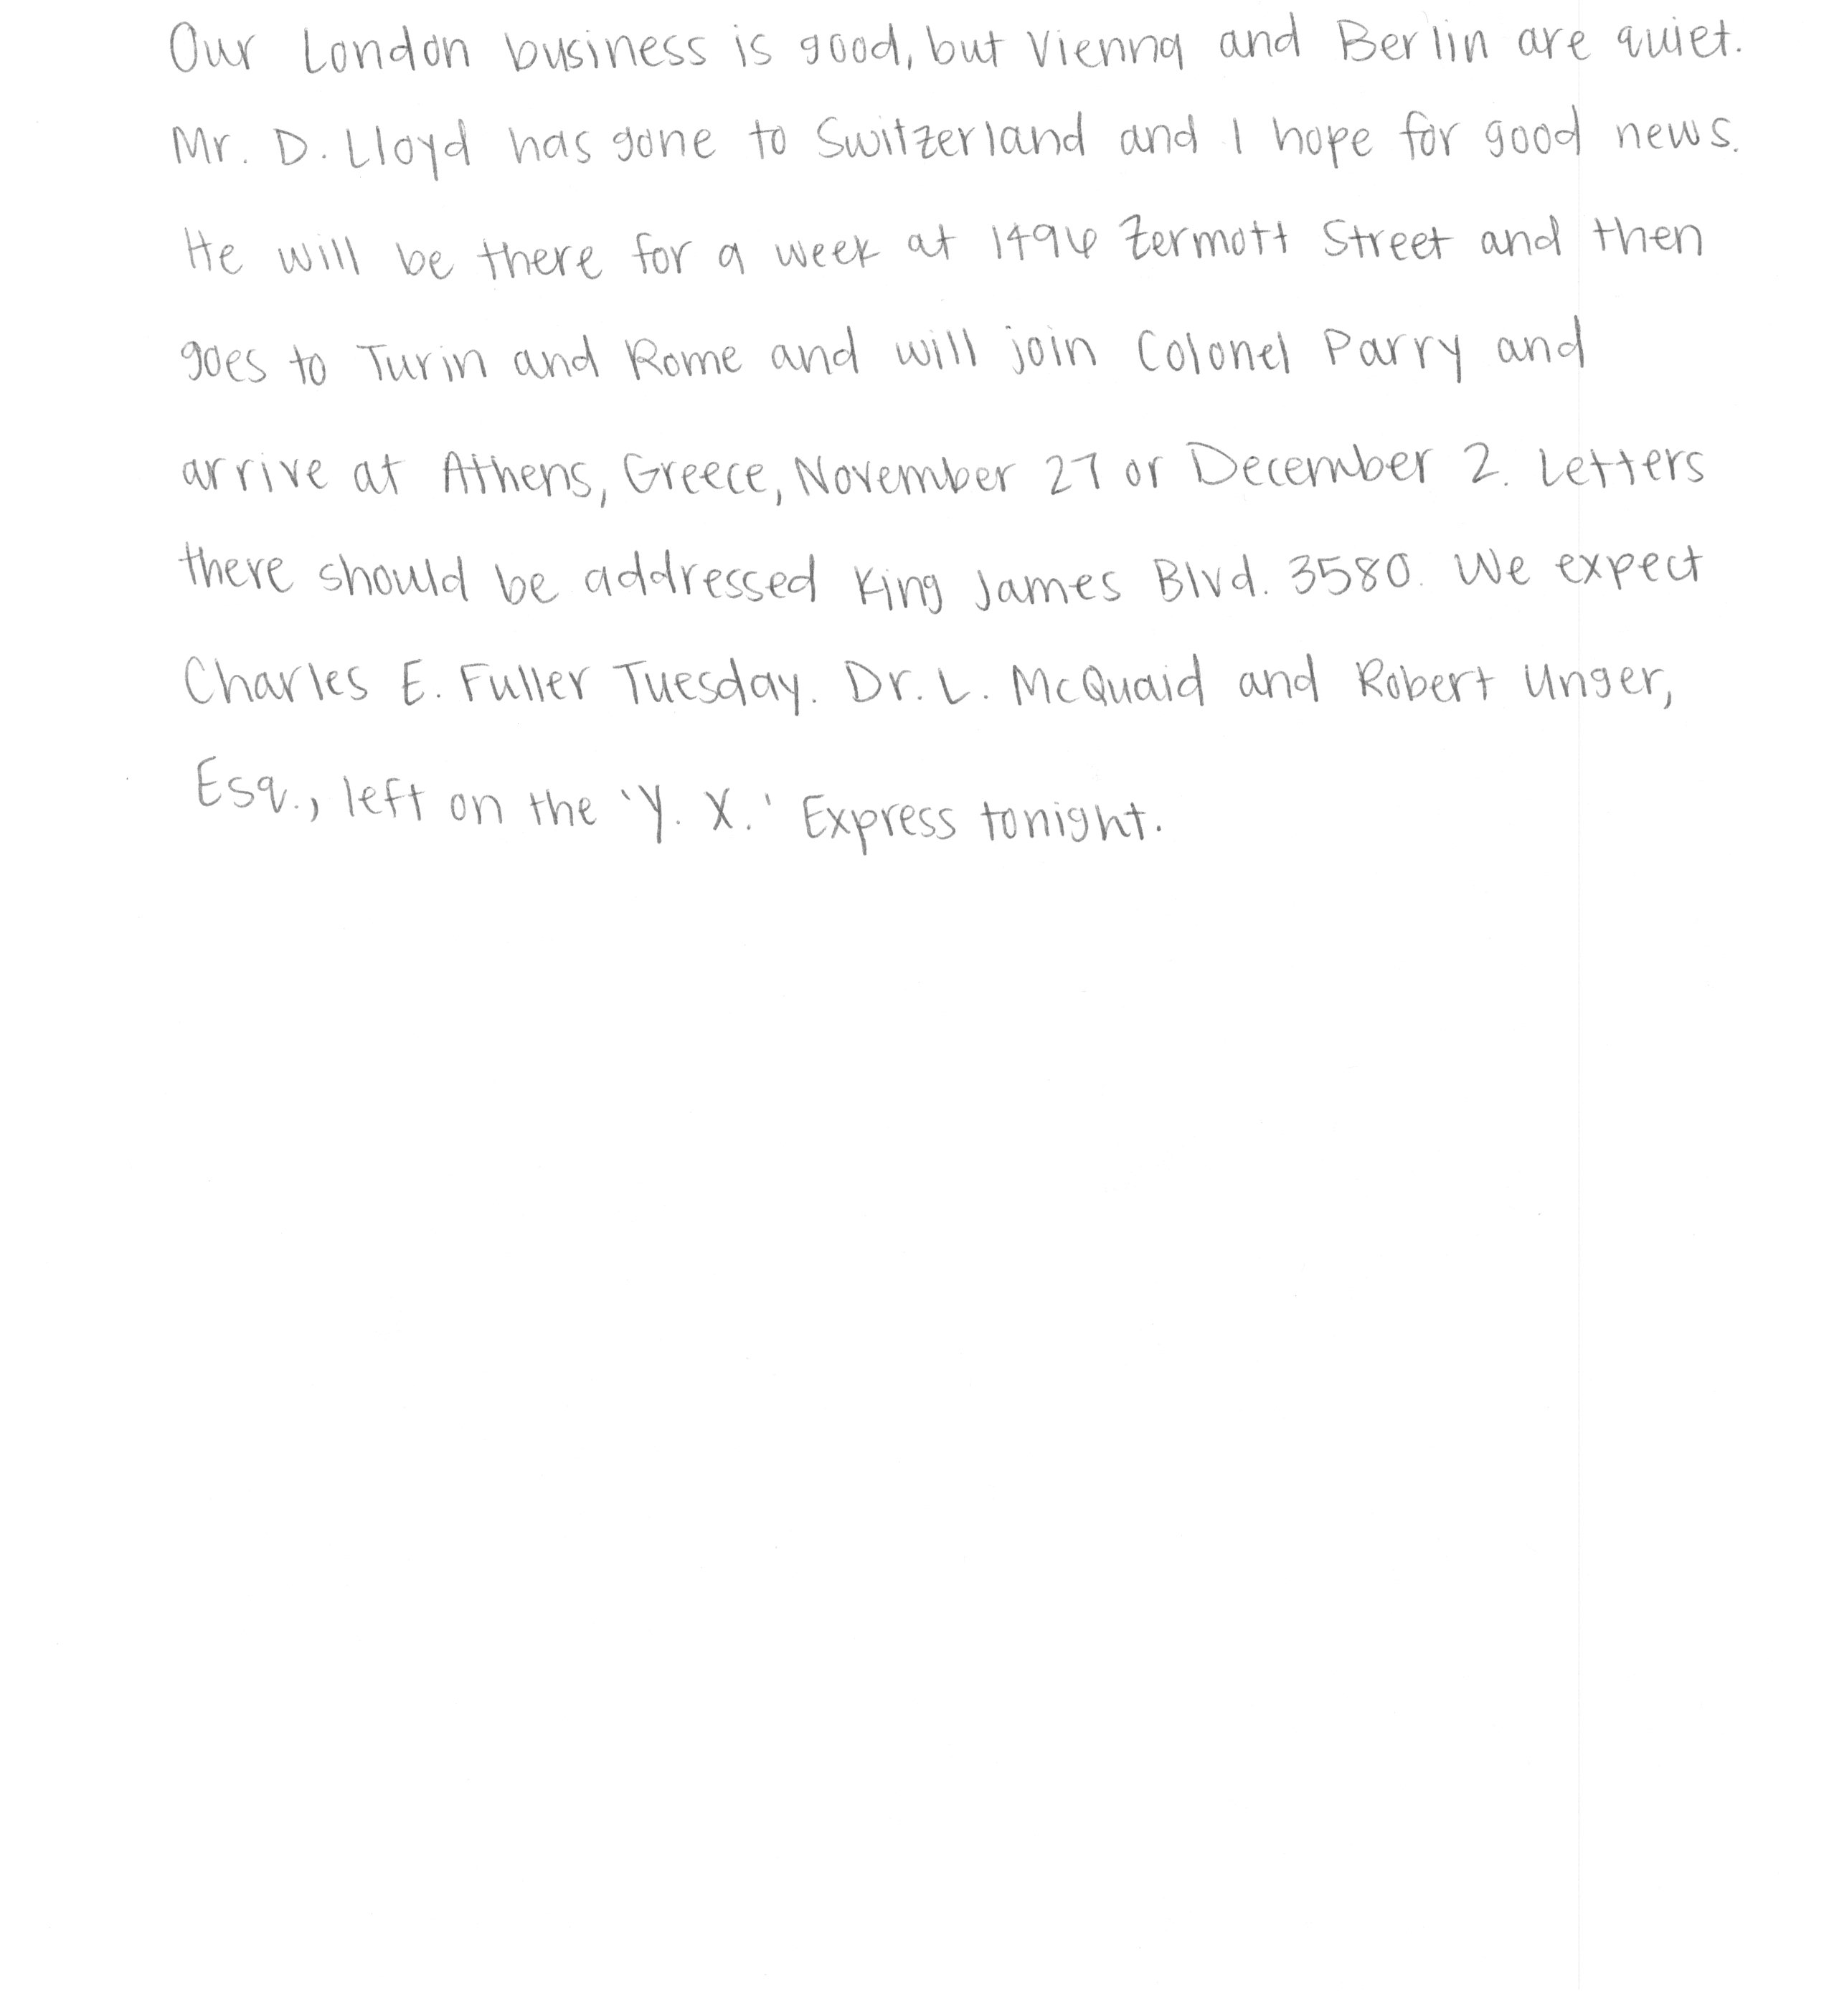 Our London business is good, but Vienna and Berlin are quiet.
Mr. D. Lloyd has gone to Switzerland and I hope for good news.
He will be there for a week at 1496 Zermott Street and then
goes to Turin and Rome and will join Colonel Parry and
arrive at Athens, Greece, November 27 or December 2. Letters
there should be addressed King James Blvd. 3580. We expect
Charles E. Fuller Tuesday. Dr. L. McQuaid and Robert Unger,
Esq., left on the 'Y. X.' Express tonight.